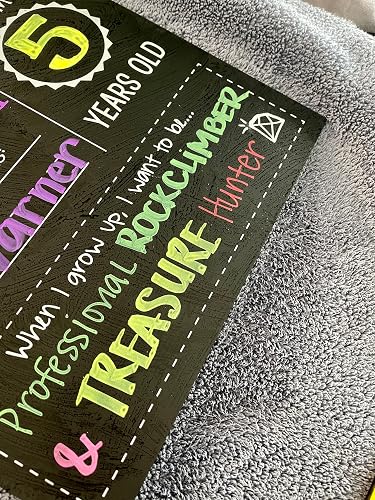 5
YEARS OLD
arner
When I grow up, I want to be...
Professional ROCKCLIMBER
& TREASURE Hunter